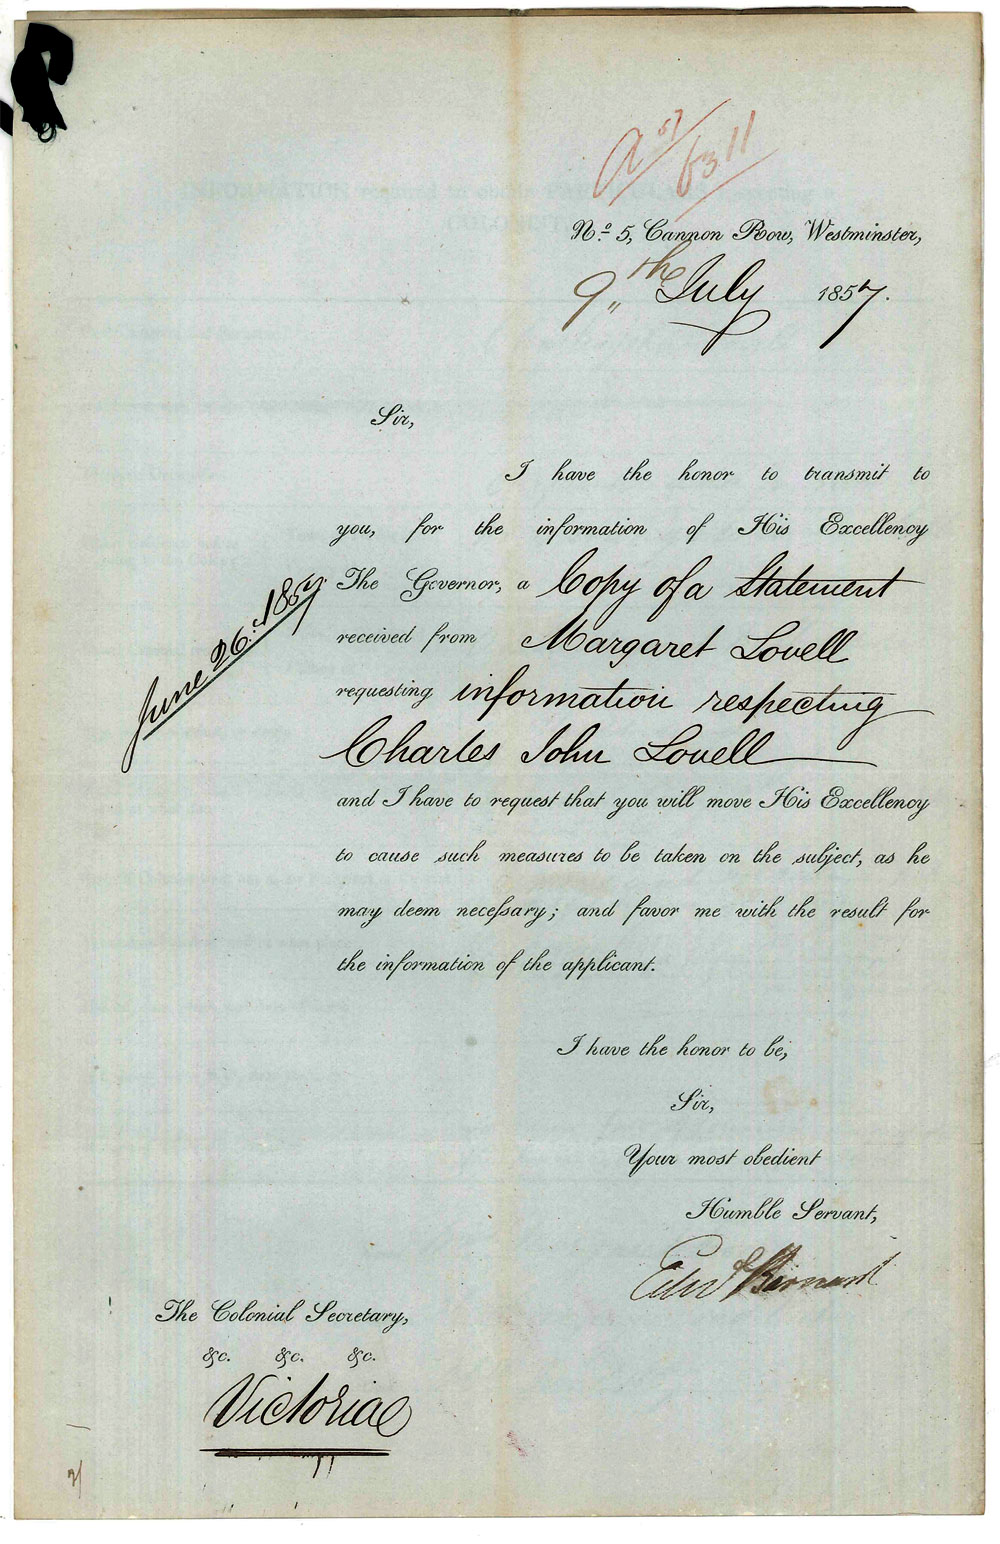 a 57/6311
No. 5, Cannon Row, Westminster,
9th July 1857.
Sir,
I have the honor to transmit to
you, for the information of His Excellency
The Governor, a Copy of a Statement
June 26. 1857
received from Margaret Lovell
requesting information respecting
Charles John Lovell
and I have to request that you will move His Excellency
to cause such measures to be taken on the subject, as he
may deem necessary; and favor me with the result for
the information of the applicant.
I have the honor to be,
Sir,
Your most obedient
Humble Servant,
Edwd Barnard
The Colonial Secretary,
&c. &c. &c.
Victoria